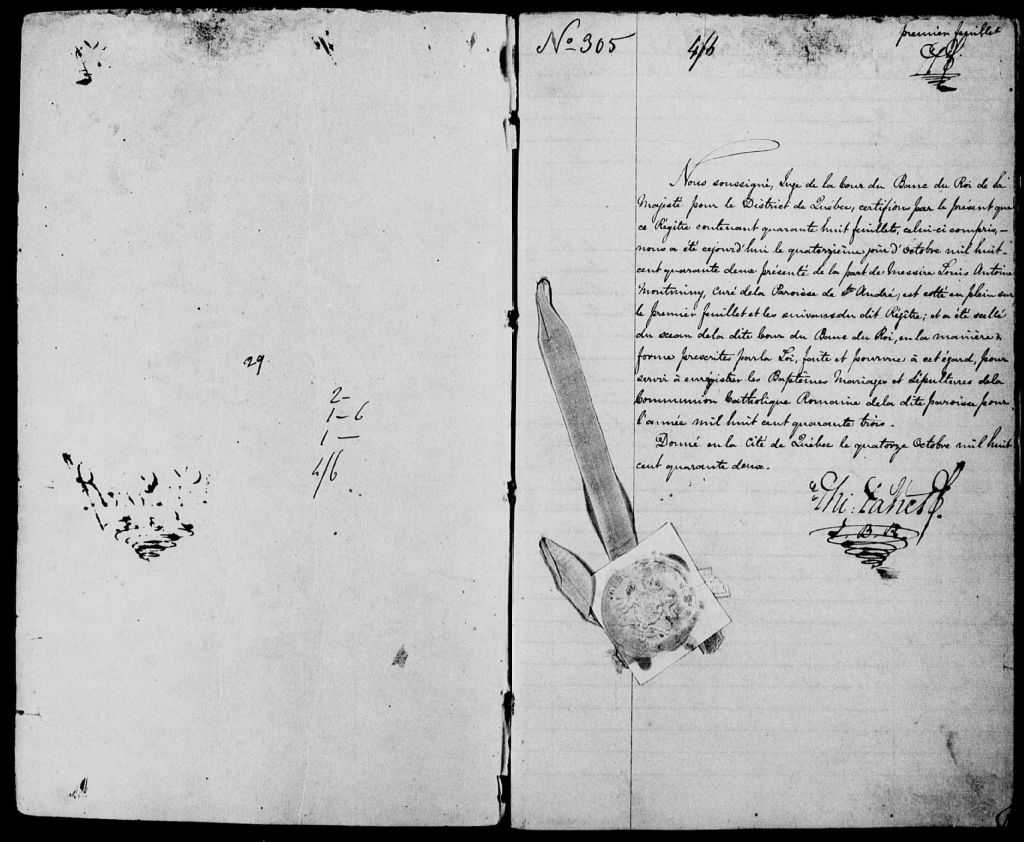 29
2-
1-6
1-
4/6
No 305
4/6
premier feuillet
Nous soussigné, Juge de la Cour du Banc du Roi de Sa
Majesté pour le District de Québec, certifions par le présent que
ce Régître contenant quarante huit feuillets, celui-ci compris,
nous a été cejourd'hui le quatorzieme jour d'Octobre mil huit-
cent quarante deux présenté de la part de Messire Louis Antoine
Montminy, Curé dela Paroisse de St André; est cotté en plein sur
le premier feuillet et les suivans du dit Régître; et a été scellé
du sceau dela dite Cour du Banc du Roi, en la manière &
forme prescrites par la Loi, faite et pourvue à cet égard, pour
servir à enrégistrer les Baptêmes Mariages et Sépultures dela
Communion Catholique Romaine dela dite paroisse pour
l'année mil huit cent quarante trois.
Donné en la Cité de Québec le quatorze Octobre mil huit
cent quarante deux.
J. B. R.